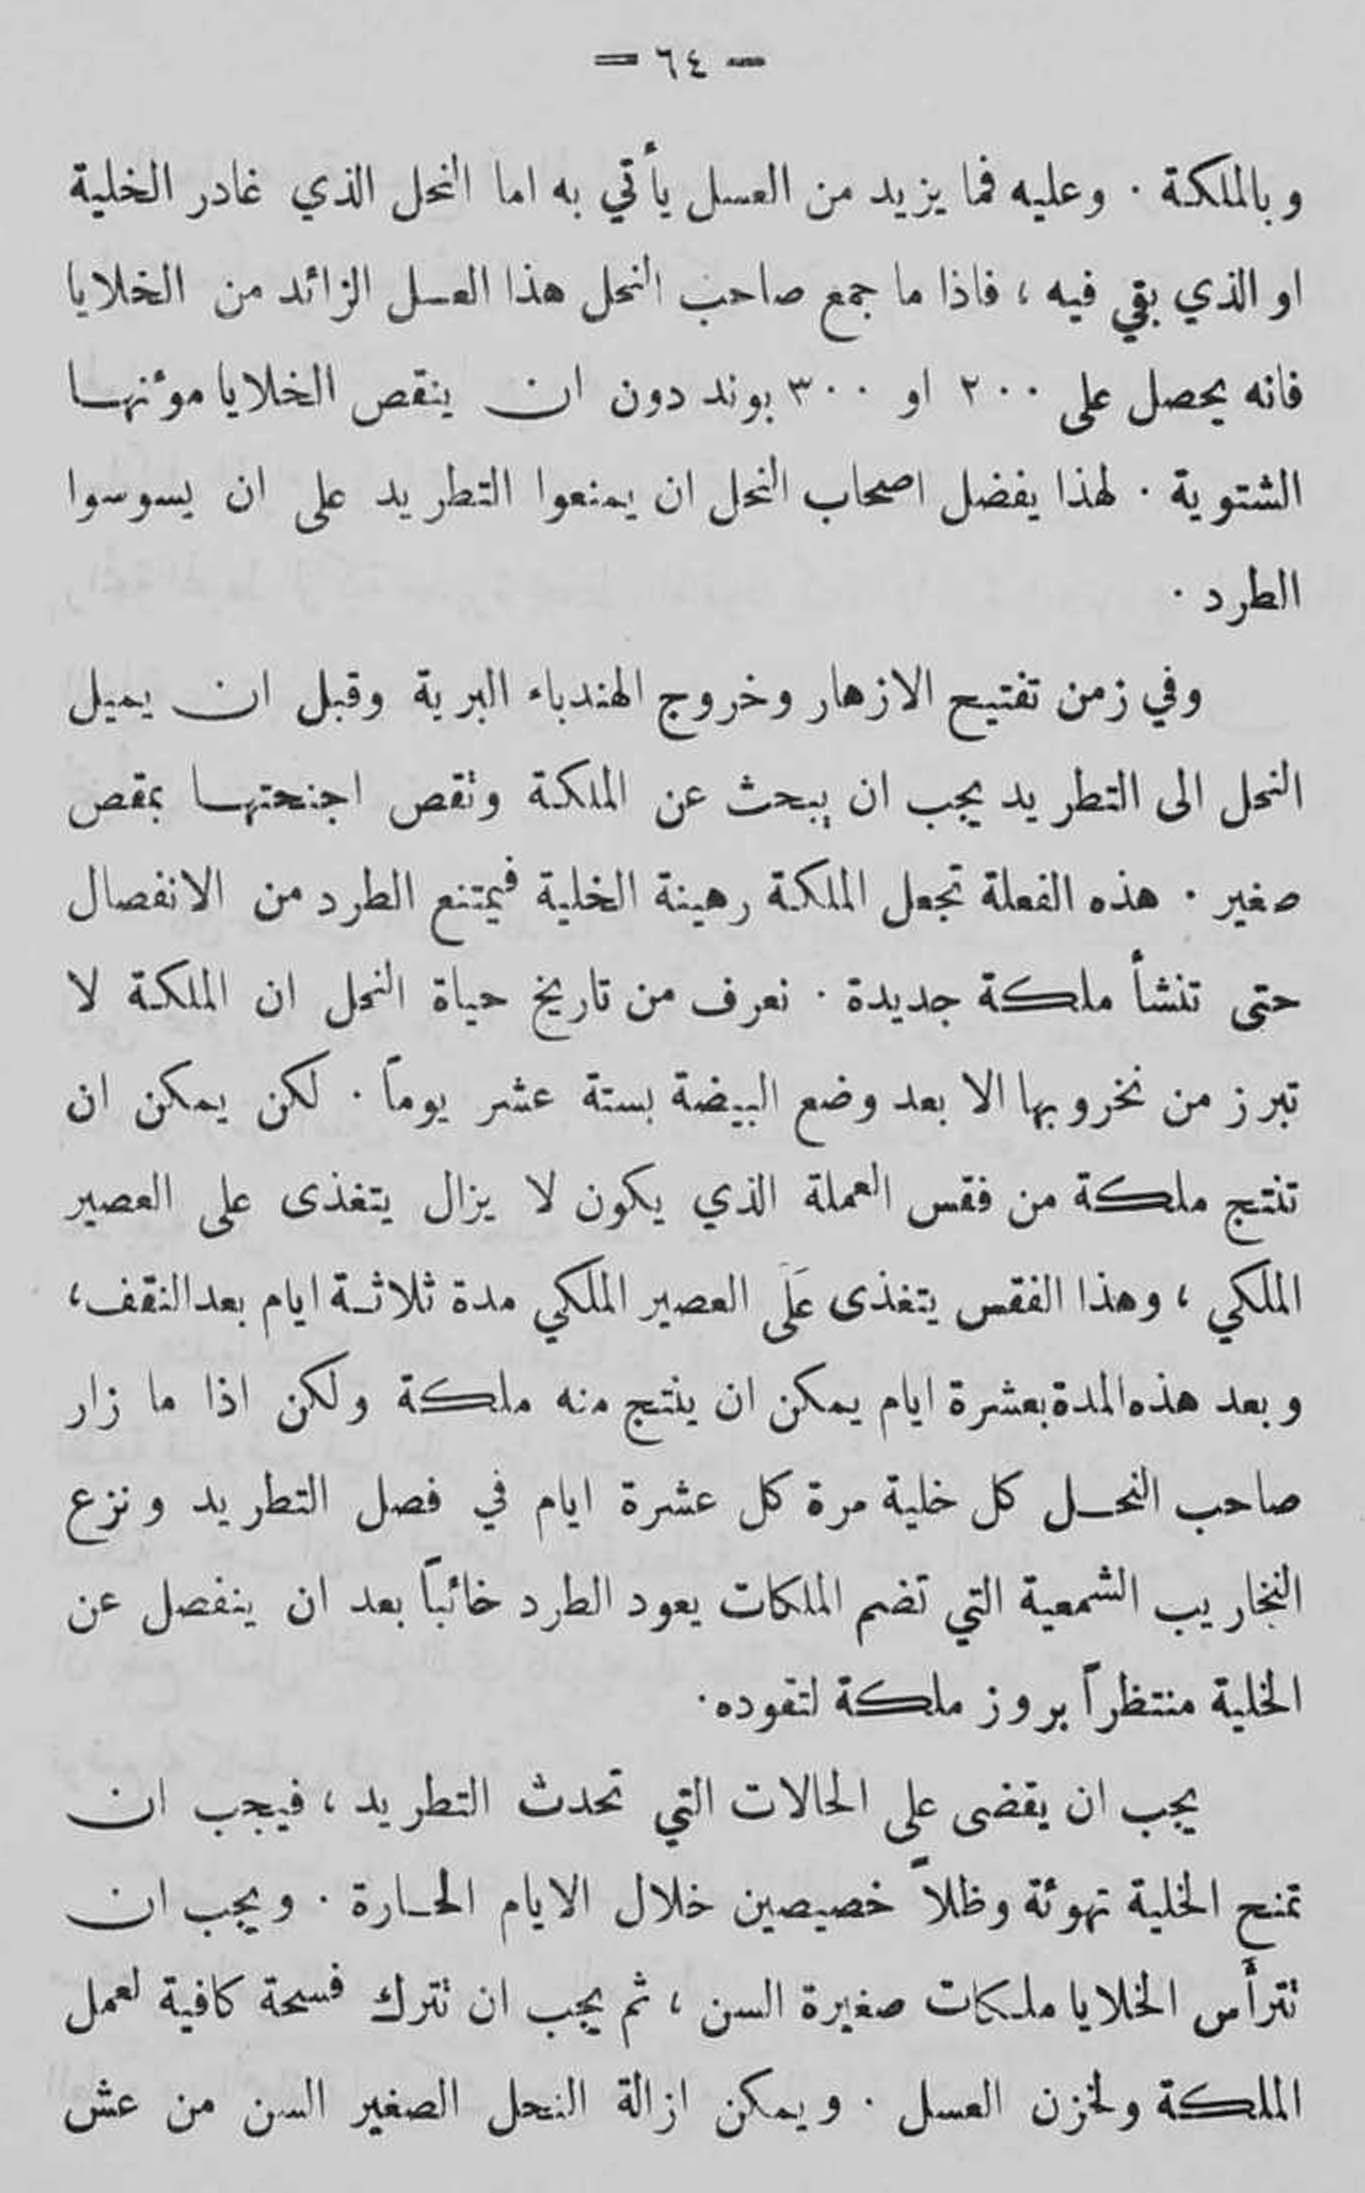 — ٦٤ =
وبالملكة . وعليه فما يزيد من العسل يأتي به اما النحل الذي غادر الخلية
او الذي بقي فيه ، فاذا ما جمع صاحب النحل هذا العسل الزائد من الخلايا
فانه يحصل على ٢٠٠ او ٣٠٠ بوند دون ان ينقص الخلايا موٴنها
الشتوية . لهذا يفضل اصحاب النحل ان يمنعوا التطريد على ان يسوسوا
الطرد .
وفي زمن تفتيح الازهار وخروج الهندباء البرية وقبل ان يميل
النحل الى التطريد يجب ان يبحث عن الملكة وتقص اجنحتها بمقص
صغير . هذه الفعلة تجعل الملكة رهينة الخلية فيمتنع الطرد من الانفصال
حتى تنشأ ملكة جديدة . نعرف من تاريخ حياة النحل ان الملكة لا
تبرز من نخروبها الا بعد وضع البيضة بستة عشر يوماً . لكن يمكن ان
تنتج ملكة من فقس العملة الذي يكون لا يزال يتغذى على العصير
الملكي ، وهذا الفقس يتغذى عَلَى العصير الملكي مدة ثلاثة ايام بعد النقف ،
وبعد هذه المدة بعشرة ايام يمكن ان ينتج منه ملكة ولكن اذا ما زار
صاحب النحل كل خلية مرة كل عشرة ايام في فصل التطريد ونزع
النخاريب الشمعية التي تضم الملكات يعود الطرد خائباً بعد ان ينفصل عن
الخلية منتظراً بروز ملكة لتقوده .
يجب ان يقضى على الحالات التي تحدث التطريد ، فيجب ان
تمنح الخلية تهوئة وظلاً خصيصين خلال الايام الحارة . ويجب ان
تترأس الخلايا ملكات صغيرة السن ، ثم يجب ان تترك فسحة كافية لعمل
الملكة ولخزن العسل . ويمكن ازالة النحل الصغير السن من عش